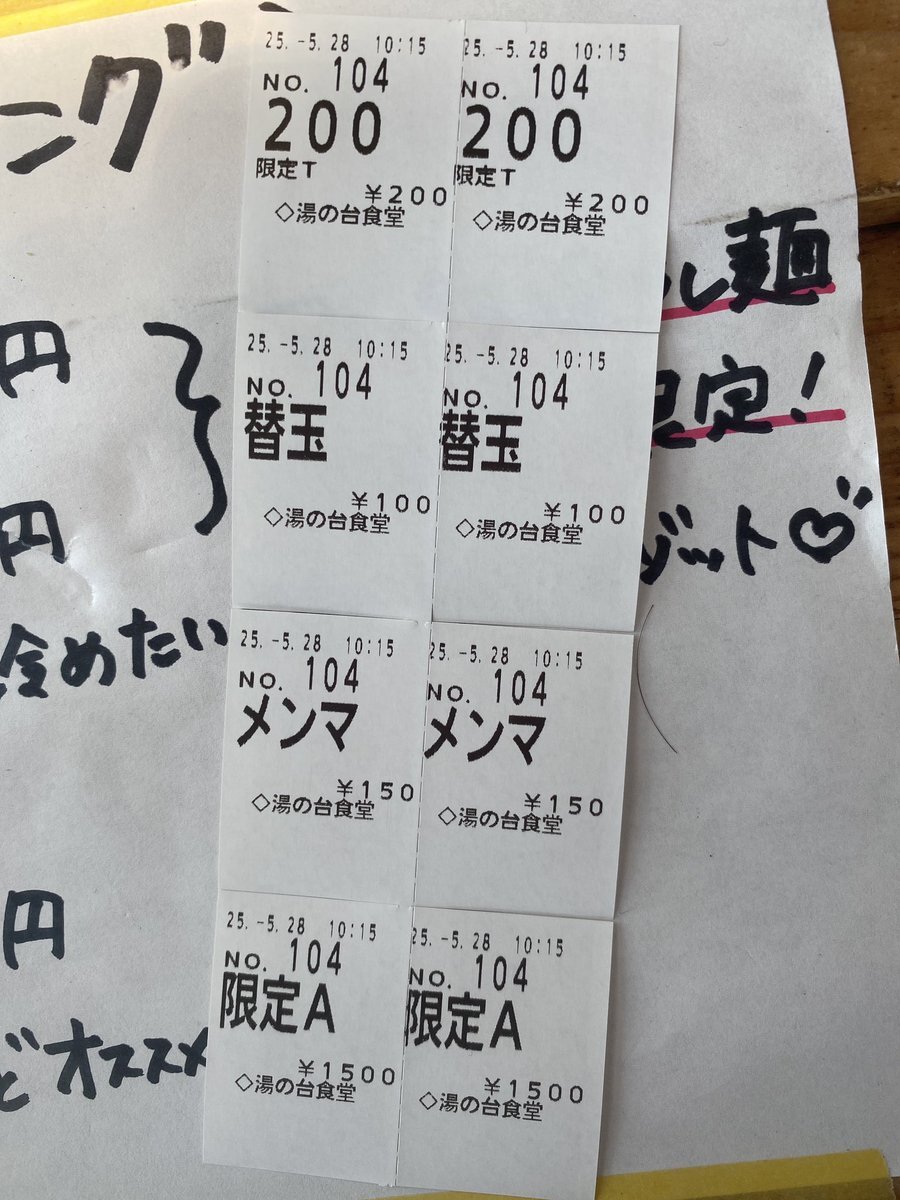 ング
25.-5.28 10:15
NO. 104
200
限定T
¥200
◇湯の台食堂
25.-5.28 10:15
NO. 104
200
限定T
¥200
◇湯の台食堂
し麺
円
25.-5.28 10:15
NO. 104
替玉
¥100
◇湯の台食堂
25.-5.28 10:15
NO. 104
替玉
¥100
◇湯の台食堂
限定!
円
ゾット♡
冷めたい
25.-5.28 10:15
NO. 104
メンマ
¥150
◇湯の台食堂
25.-5.28 10:15
NO. 104
メンマ
¥150
◇湯の台食堂
円
どオススメ
25.-5.28 10:15
NO. 104
限定A
¥1500
◇湯の台食堂
25.-5.28 10:15
NO. 104
限定A
¥1500
◇湯の台食堂